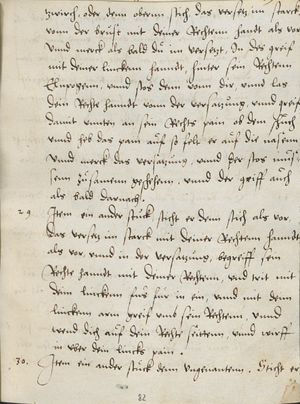 zwirch, oder dem oberen stich, das versetz im starck
vonn der brust mit deiner Rechtenn handt als vor
Vnnd merck als bald du im versetzt, In des greif
mit deiner linckenn hanndt, hinter sein Rechtenn
Elnpogenn, vnnd stos denn vonn dir, vnnd las
dein Rechte hanndt vonn der versatzung, vnnd greif
damit vnnten an sein Rechts pain ob dem
vnnd heb das pain auf so felt er auf die nasenn
Vnnd merck das versatzung, vnnd der stos mus
senn zusamenn geschehenn, vnnd der griff auch
als bald darnach.
29 Item ein ander stuck sticht er denn stich als vor,
das versetz im starck mit deiner Rechtenn hanndt
als vor, vnnd in der versatzung, begreiff sein
Rechte hanndt mit deiner Rechtenn, vnnd trit mit
dein linckenn fus für in ein, vnnd mit dem
linckenn arm greif vmb sein Rechtenn, vnnd
wend dich auf dein Rechte seittenn, vnnd wirff
in vber dein lincks pain.
30. Item ein ander stuck denn Vngenantenn. Sticht er
82